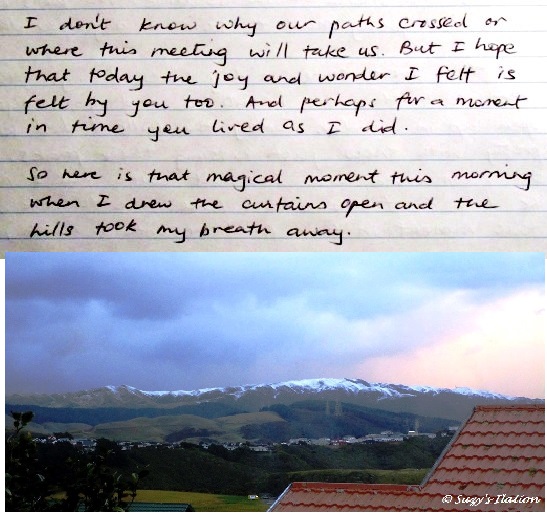 I don't know why our paths crossed or
where this meeting will take us. But I hope
that today the joy and wonder I felt is
felt by you too. And perhaps for a moment
in time you lived as I did.
So here is that magical moment this morning
when I drew the curtains open and the
hills took my breath away.
© Suzy's Ilation